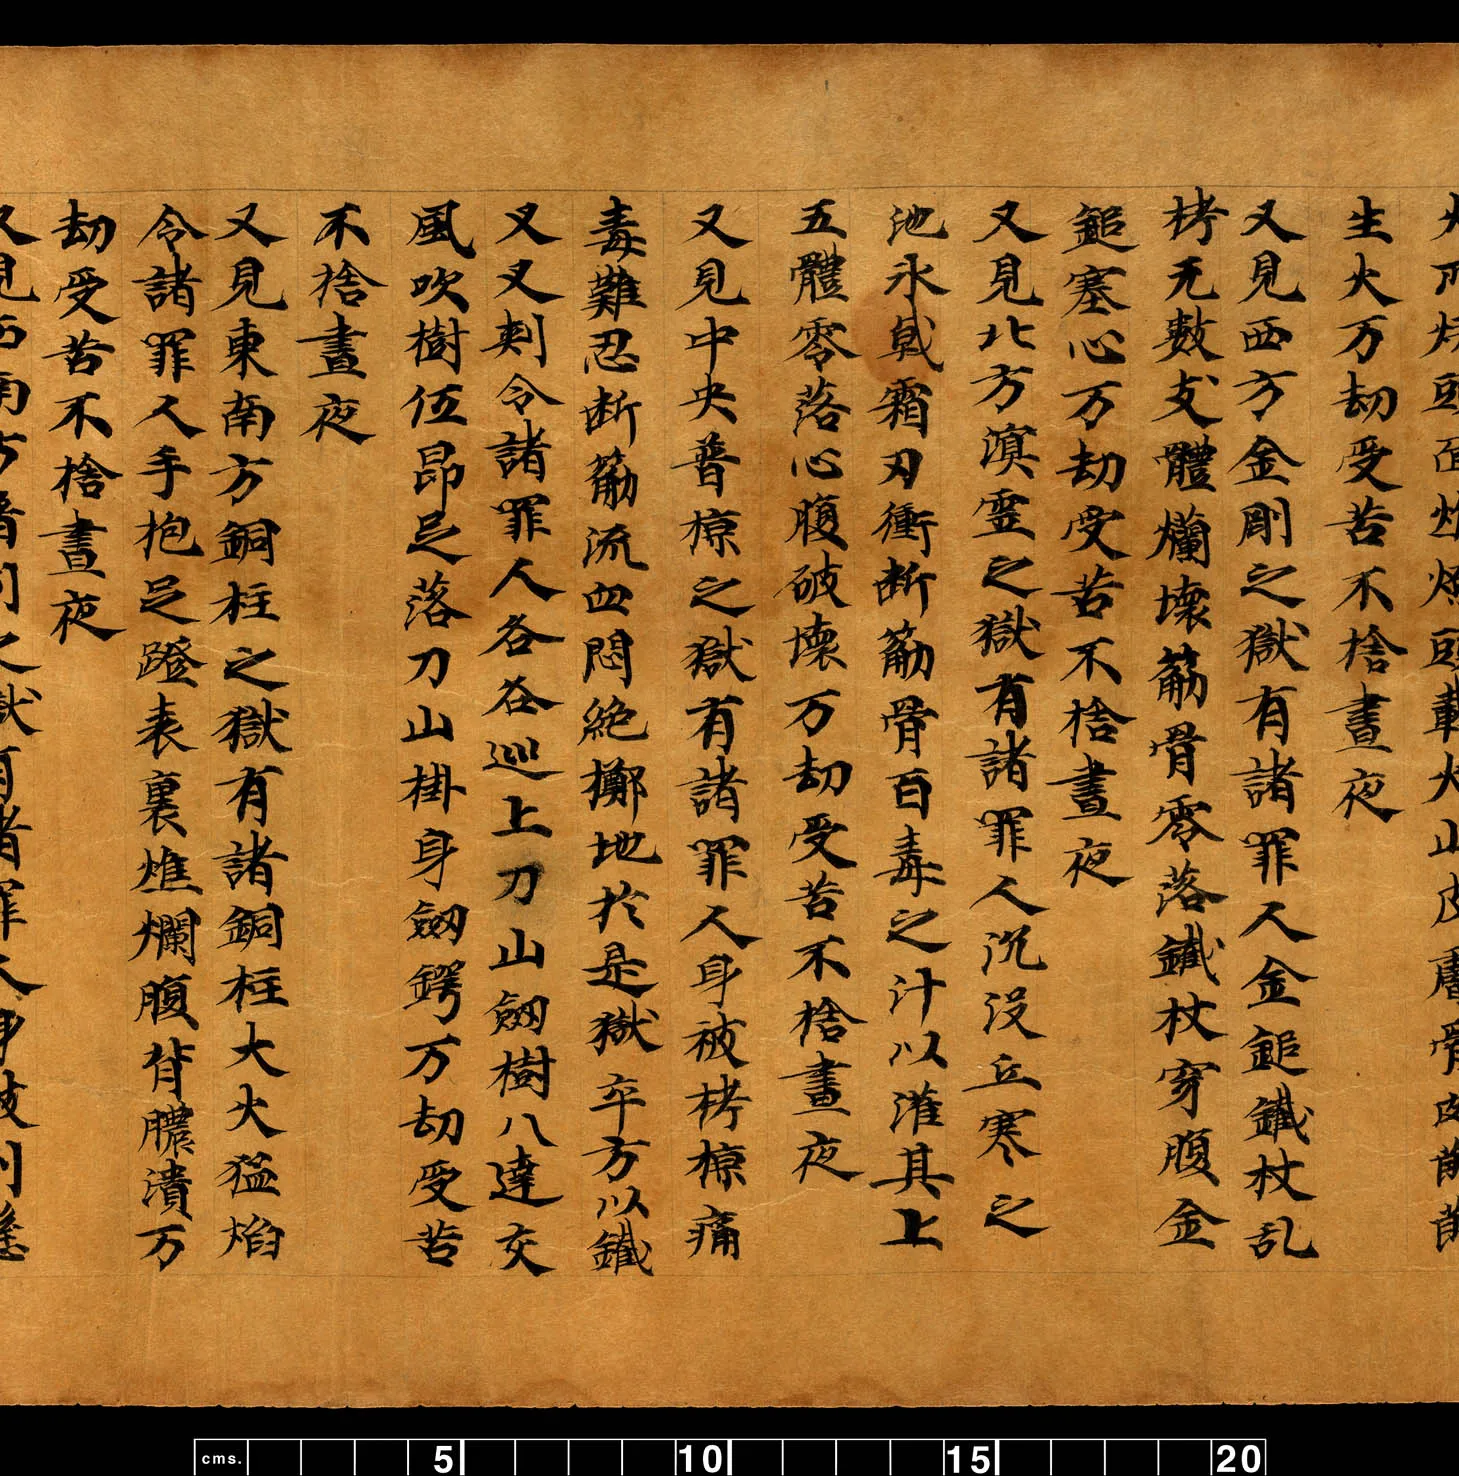 頭面
生火万劫受苦不捨晝夜
又見西方金剛之獄有諸罪人金鎚鐵杖乱
栲无數支體爛壞筋骨零落鐵杖穿腹金
鎚塞心万劫受苦不捨晝夜
又見北方溟霊之獄有諸罪人沉没丘寒之
池氷戟霜刃衝断筋骨百毒之汁以灌其上
五體零落心腹破壞万劫受苦不捨晝夜
又見中央普椋之獄有諸罪人身被栲椋痛
毒難忍断筋流血悶絶擲地於是獄卒方以鐵
叉叉刾令諸罪人各各巡上刀山劔樹八達交
風吹樹伍昂足落刀山掛身劔鍔万劫受苦
不捨晝夜
又見東南方銅柱之獄有諸銅柱大火猛焰
令諸罪人手抱足蹬表裏燋爛腹背膿潰万
劫受苦不捨晝夜
又見西南方